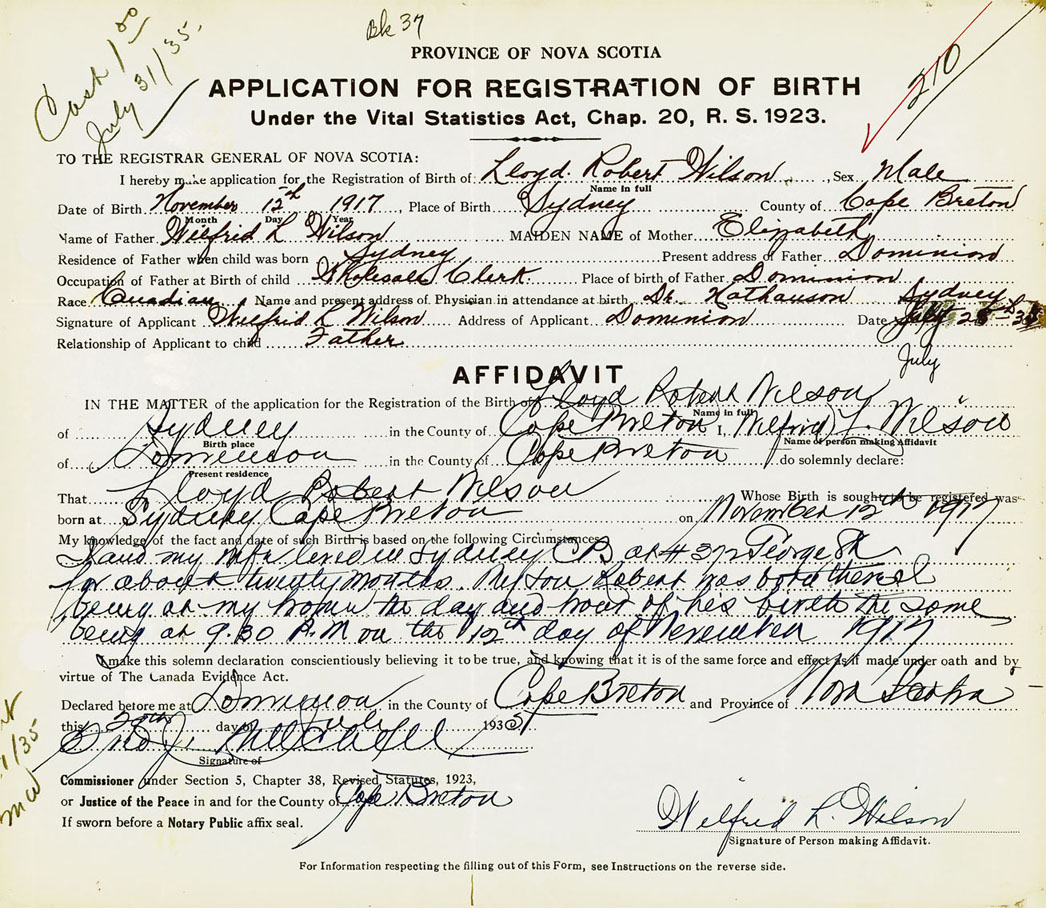 Bk 37
Cash 1.00
July 31/35.
210
PROVINCE OF NOVA SCOTIA
APPLICATION FOR REGISTRATION OF BIRTH
Under the Vital Statistics Act, Chap. 20, R. S. 1923.
TO THE REGISTRAR GENERAL OF NOVA SCOTIA:
I hereby make application for the Registration of Birth of Lloyd Robert Wilson, Sex Male
Name in full
Date of Birth November 12th 1917, Place of Birth Sydney County of Cape Breton
Month Day Year
Name of Father Wilfrid L Wilson MAIDEN NAME of Mother Elizabeth
Residence of Father when child was born Sydney Present address of Father Dominion
Occupation of Father at Birth of child Wholesale Clerk Place of birth of Father Dominion
Race Canadian Name and present address of Physician in attendance at birth Dr. Nathanson Sydney
Signature of Applicant Wilfrid L Wilson Address of Applicant Dominion Date July
Relationship of Applicant to child Father
July
AFFIDAVIT
IN THE MATTER of the application for the Registration of the Birth of Lloyd Robert Wilson
Name in full
of Sydney in the County of Cape Breton I, Wilfrid L. Wilson
Birth place Name of person making Affidavit
of Dominion in the County of Cape Breton do solemnly declare:
Present residence
That Lloyd Robert Wilson Whose Birth is sought to be registered was
born at Sydney Cape Breton on November 12th 1917
My knowledge of the fact and date of such Birth is based on the following Circumstances
I and my wife lived in Sydney C B at # George St
for about twenty months. My son Robert was born there I
being at my home the day and hour of his birth the same
being at 9.30 P.M on the 12th day of November 1917
I make this solemn declaration conscientiously believing it to be true, and knowing that it is of the same force and effect as if made under oath and by
virtue of The Canada Evidence Act.
Declared before me at Dominion in the County of Cape Breton and Province of Nova Scotia
this day of July 1935
Mitchell
Signature of
Commissioner under Section 5, Chapter 38, Revised Statutes, 1923,
or Justice of the Peace in and for the County of Cape Breton
If sworn before a Notary Public affix seal.
Wilfrid L. Wilson
Signature of Person making Affidavit.
For Information respecting the filling out of this Form, see Instructions on the reverse side.